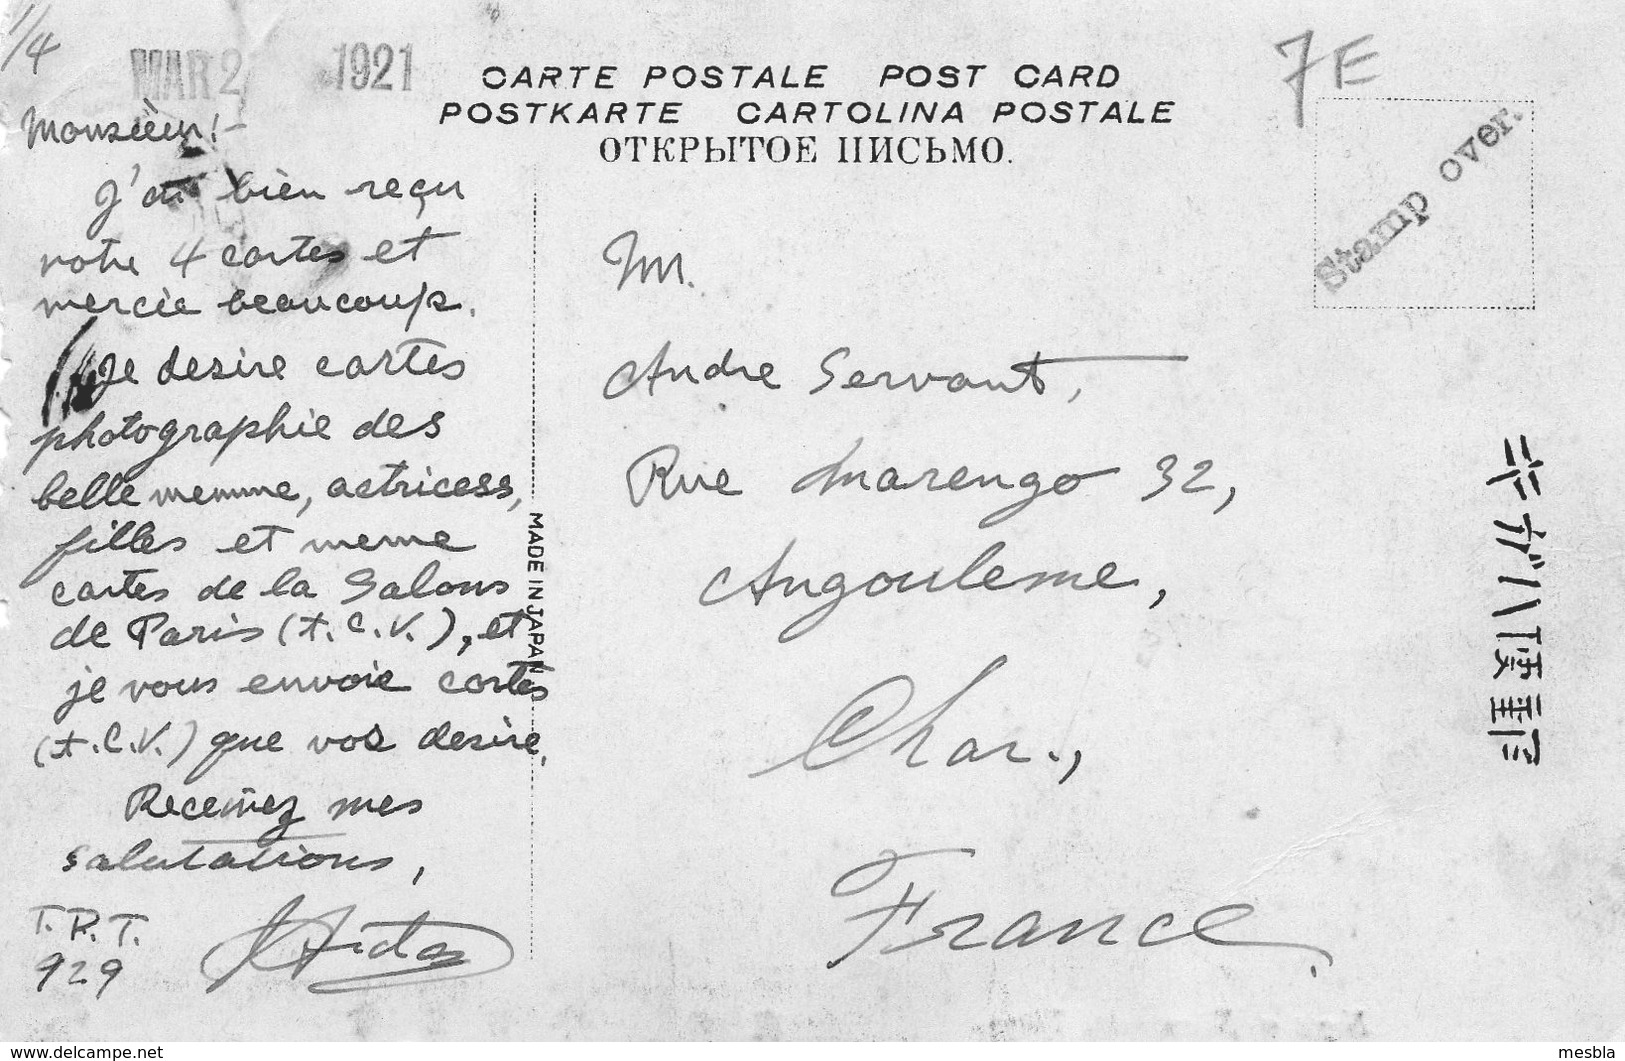 1/4
MAR 2 1921
CARTE POSTALE POST CARD
POSTKARTE CARTOLINA POSTALE
ОТКРЫТОЕ ПИСЬМО.
7E
Stamp over.
Monsieur!-
J'ai bien reçu
votre 4 cartes et
mercie beaucoup.
Je desire cartes
photographie des
belle memme, actricess,
filles et meme
cartes de la Salons
de Paris (t.C.V.), et
je vous envoie cartes
(t.C.V.) que vos desire.
Recevez mes
salutations,
T.R.T.
929
MADE IN JAPAN
M.
Andre Servant,
Rue Marengo 32,
Angouleme,
Char.,
France.
mesbla
www.delcampe.net